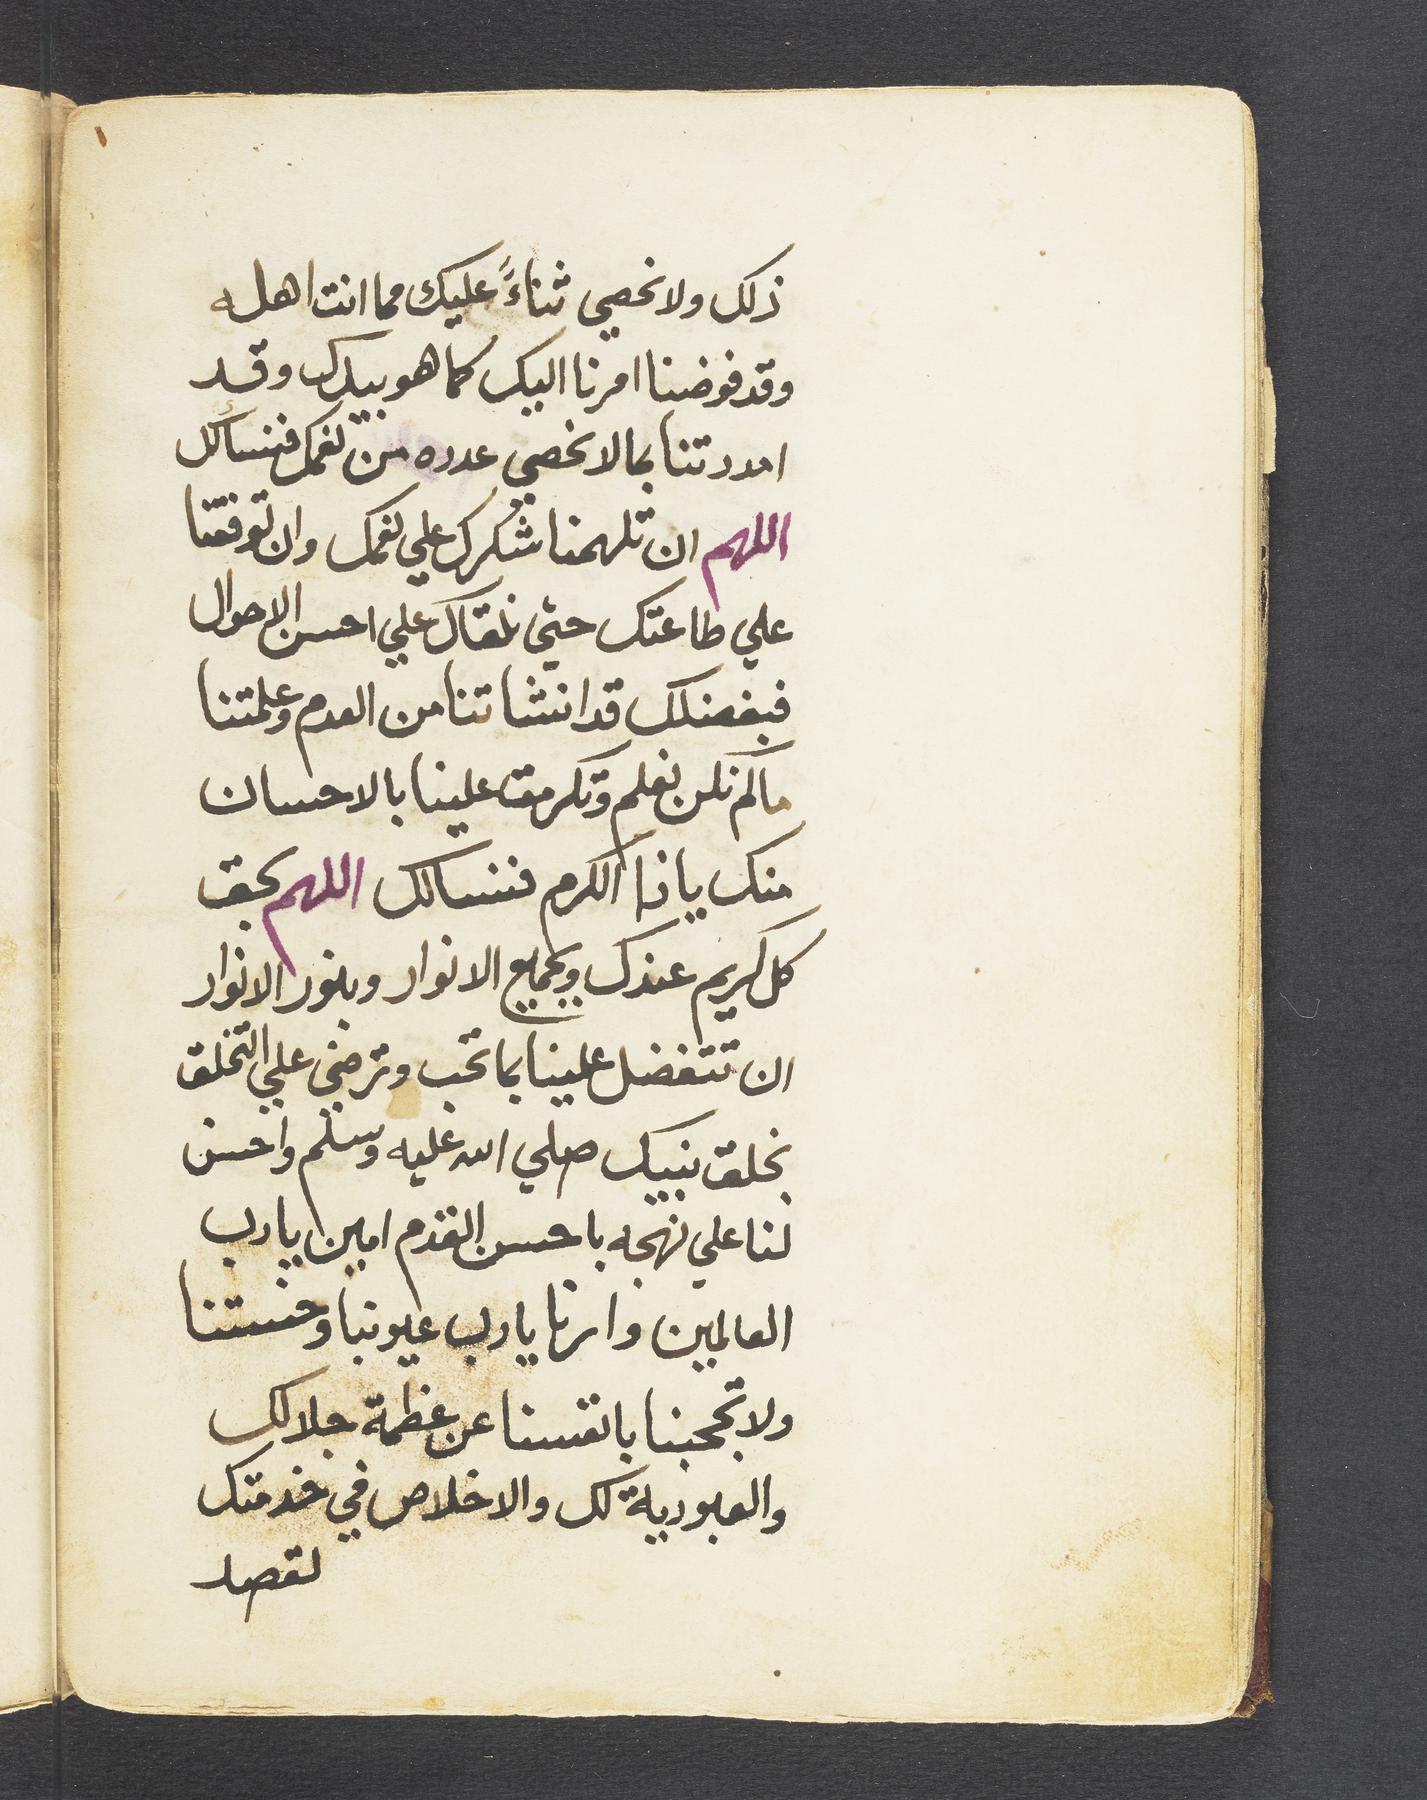 ذلك ولا نحصي ثناءً عليك مما انت اهله
وقد فوضنا امرنا اليك كما هو بيدك وقد
امددتنا بما لا نحصي عدده من نعمك فنسألك
اللهم ان تلهمنا شكرك علي نعمك وان توفقنا
علي طاعتك حتي نلقاك علي احسن الاحوال
فبفضلك قد انشاتنا من العدم وعلمتنا
مالم نكن نعلم وتكرمت علينا بالاحسان
منك ياذا الكرم فنسالك اللهم بحق
كل كريم عندك وبجميع الانوار وبنور الانوار
ان تتفضل علينا بما تحب وترضي علي التخلق
بخلق نبيك صلي الله عليه وسلم واحسن
لنا علي نهجه باحسن القدم امين يارب
العالمين وارنا يارب عيوبنا وخستنا
ولا تحجبنا بانفسنا عن عظمة جلالك
والعبودية لك والاخلاص في خدمتك
لقصد